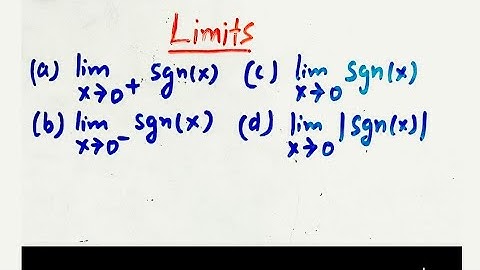 Limits
(a) lim x→0⁺ sgn(x) (c) lim x→0 sgn(x)
(b) lim x→0⁻ sgn(x) (d) lim x→0 |sgn(x)|